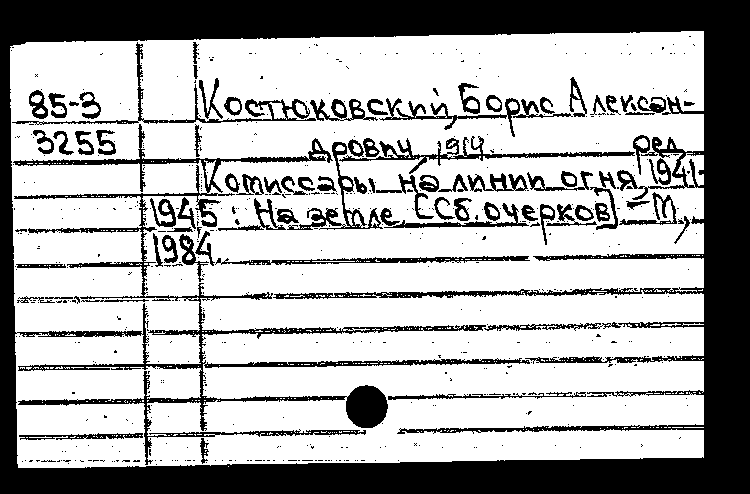 85-3 Костюковский, Борис Алексан-
3255 дрович, 1914. ред.
Комиссары на линии огня, 1941-
1945: На земле. [Сб. очерков] - М.,
1984.